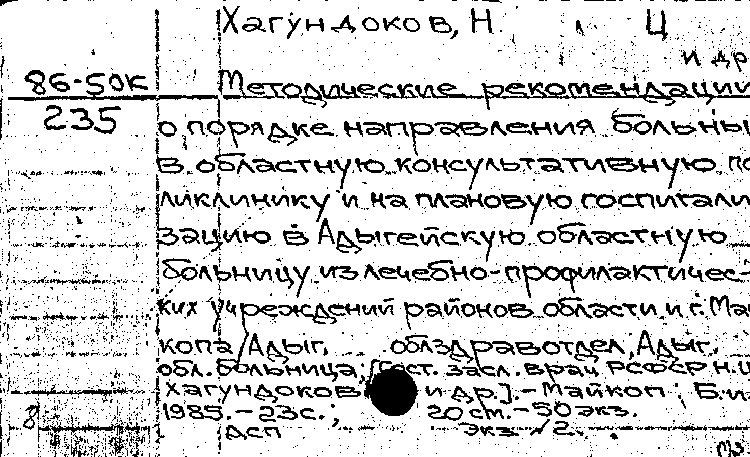 Хагундоков, Н. Ц
и др
86-50К Методические рекомендации
235 о порядке направления больны
в областную консультативную по
ликлинику и на плановую госпитали
зацию в Адыгейскую областную
больницу из лечебно-профилактичес-
ких учреждений районов области и г. Май
копа/Адыг. облздравотдел, Адыг.
обл. больница; [сост. засл. врач РСФСР Н.Ц
Хагундоков и др.].-Майкоп; Б.и
8 1985.-23с.; 20 см.-50 экз.
ДСП экз 2.